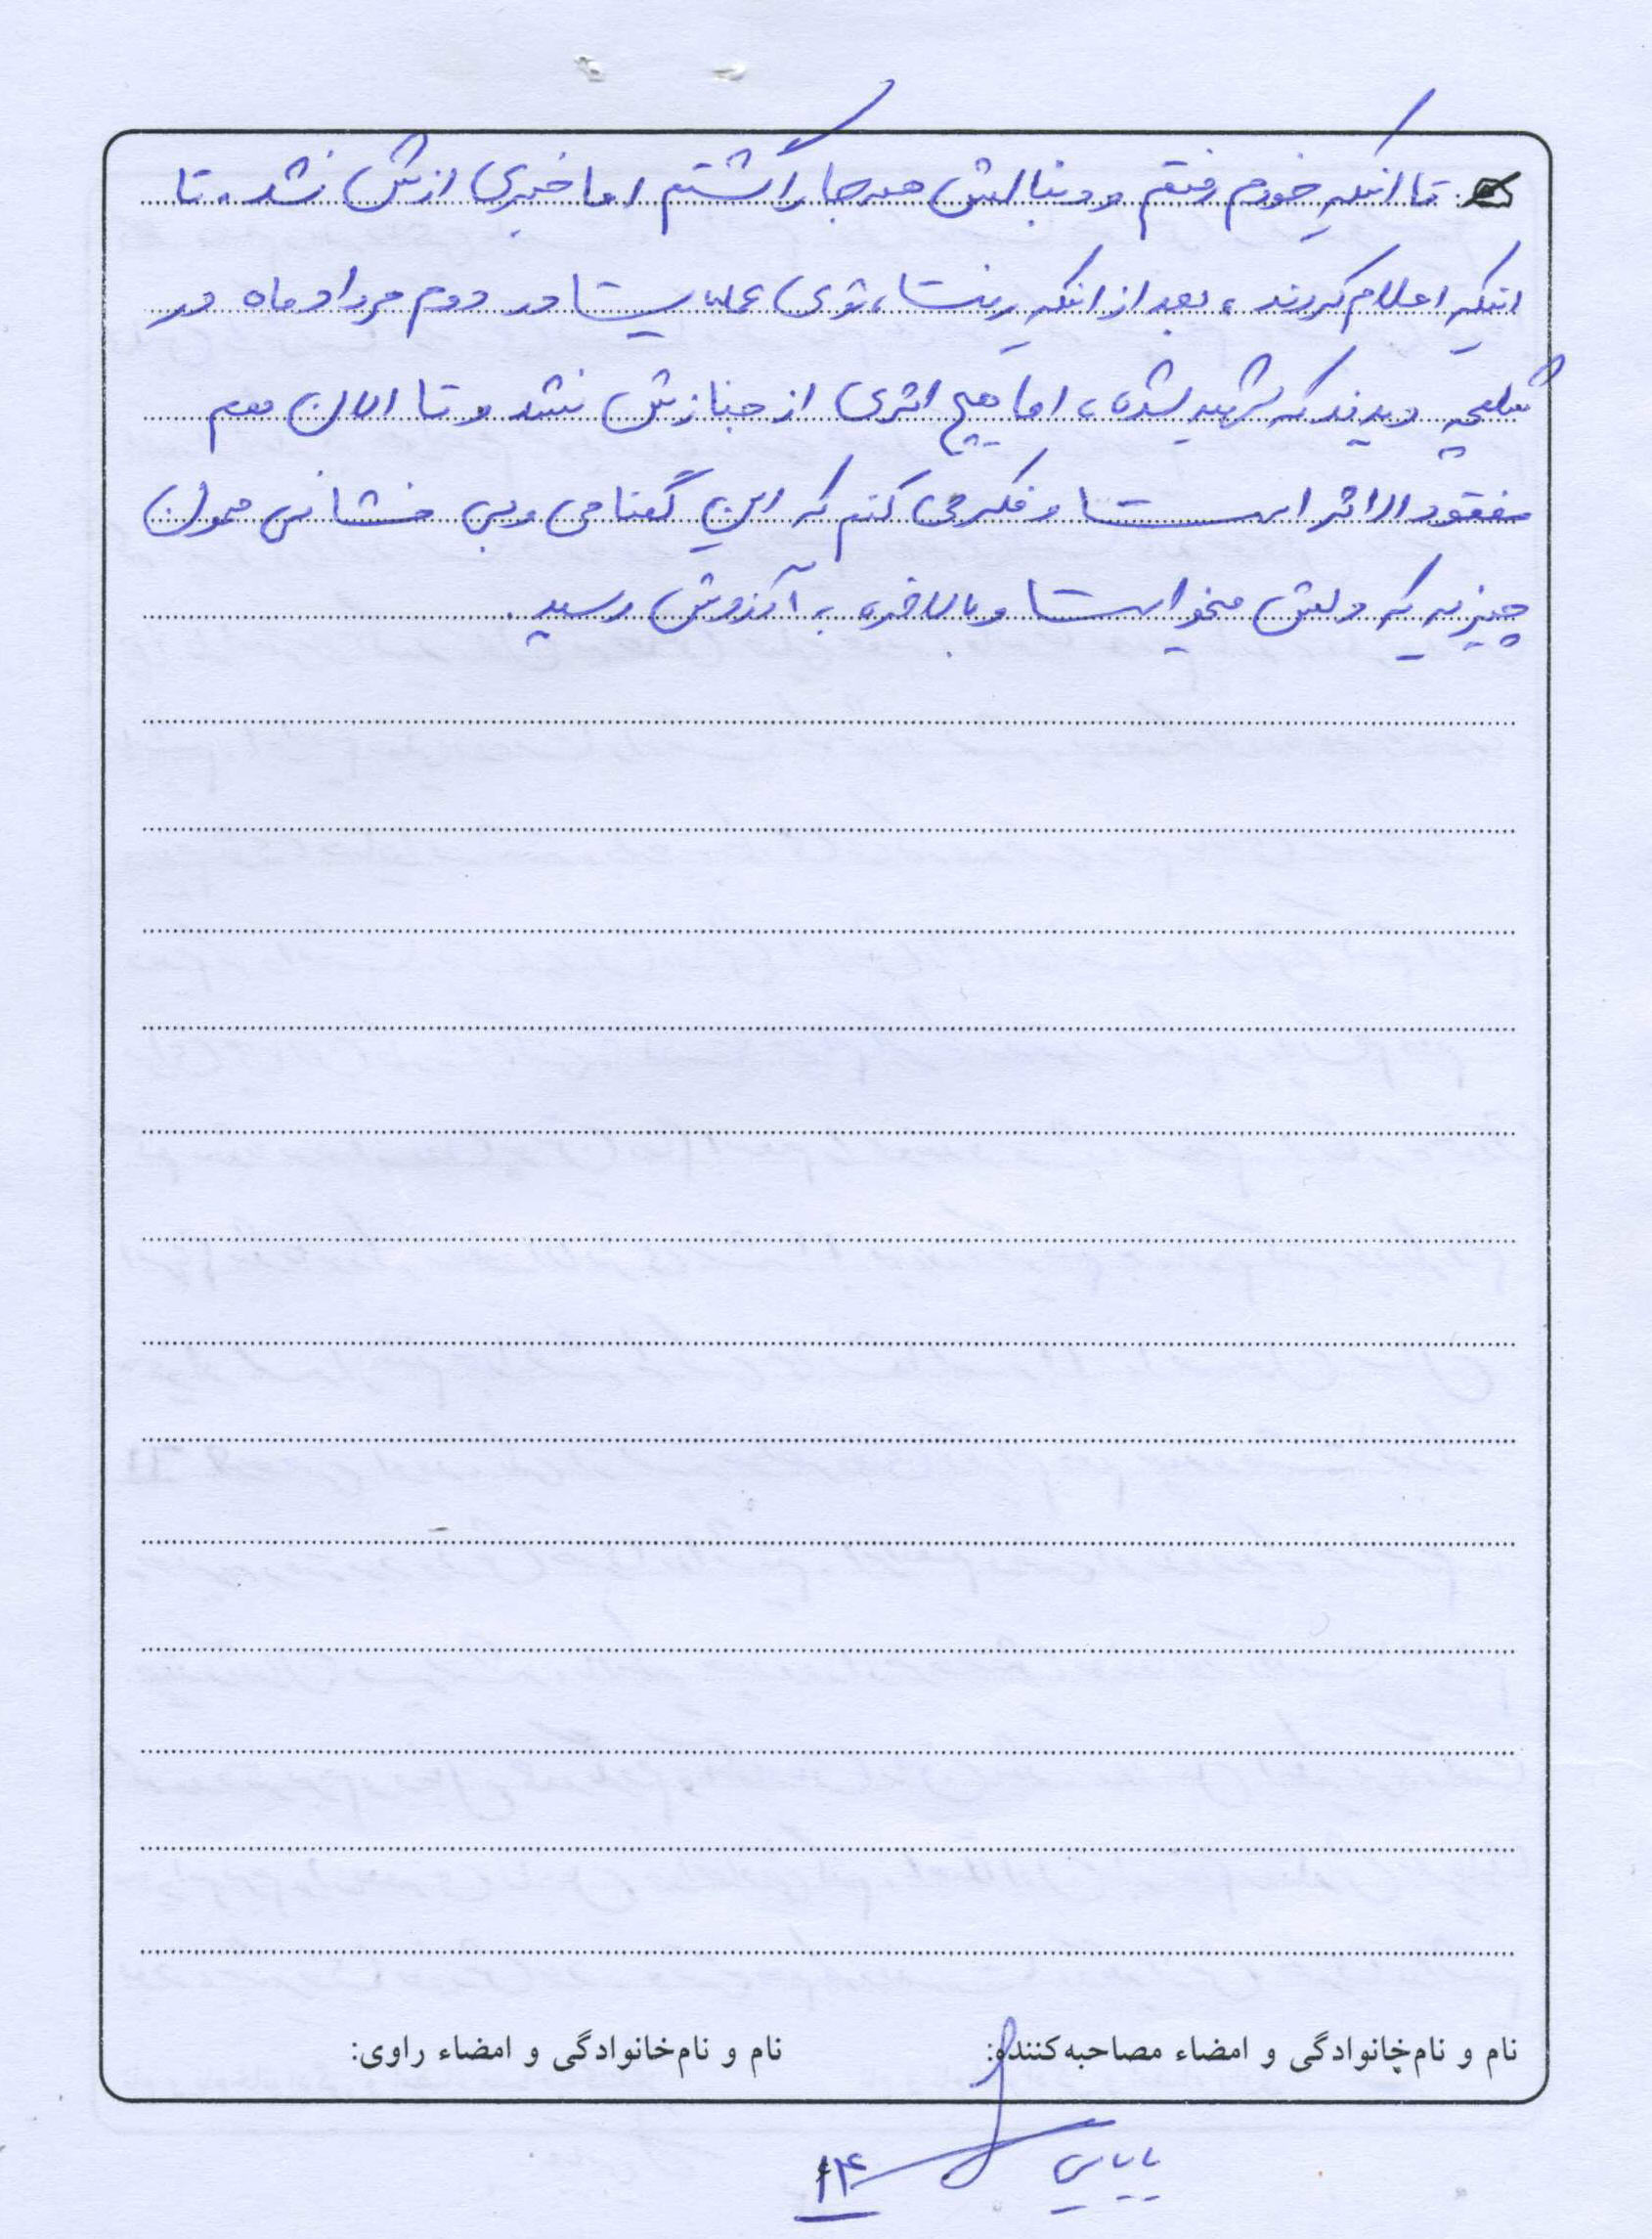 تا اینکه خودم رفتم و دنبالش همه جا را گشتم اما خبری ازش نشد. تا
اینکه اعلام کردند، بعد از اینکه رفت، توی عملیات در دوم مرداد ماه در
شلمچه دیدند که شهید شده، اما هیچ اثری از جنازش نشد و تا الان هم
مفقود الاثر است و فکر می کنم که این گمنامی و بی نشانی همون
چیزیه که دلش میخواست و بالاخره به آرزوش رسید.
نام و نام‌خانوادگی و امضاء مصاحبه‌کننده:
نام و نام‌خانوادگی و امضاء راوی:
بابایی
۱۴